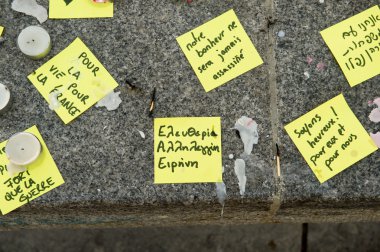 notre
bonheur ne
sera jamais
assassiné
POUR
LA
VIE POUR
LA FRANCE
Ελευθερία
Αλληλεγγύη
Ειρήνη
Soyons
heureux!
pour eux et
pour nous
FORT
QUE LA
GUERRE